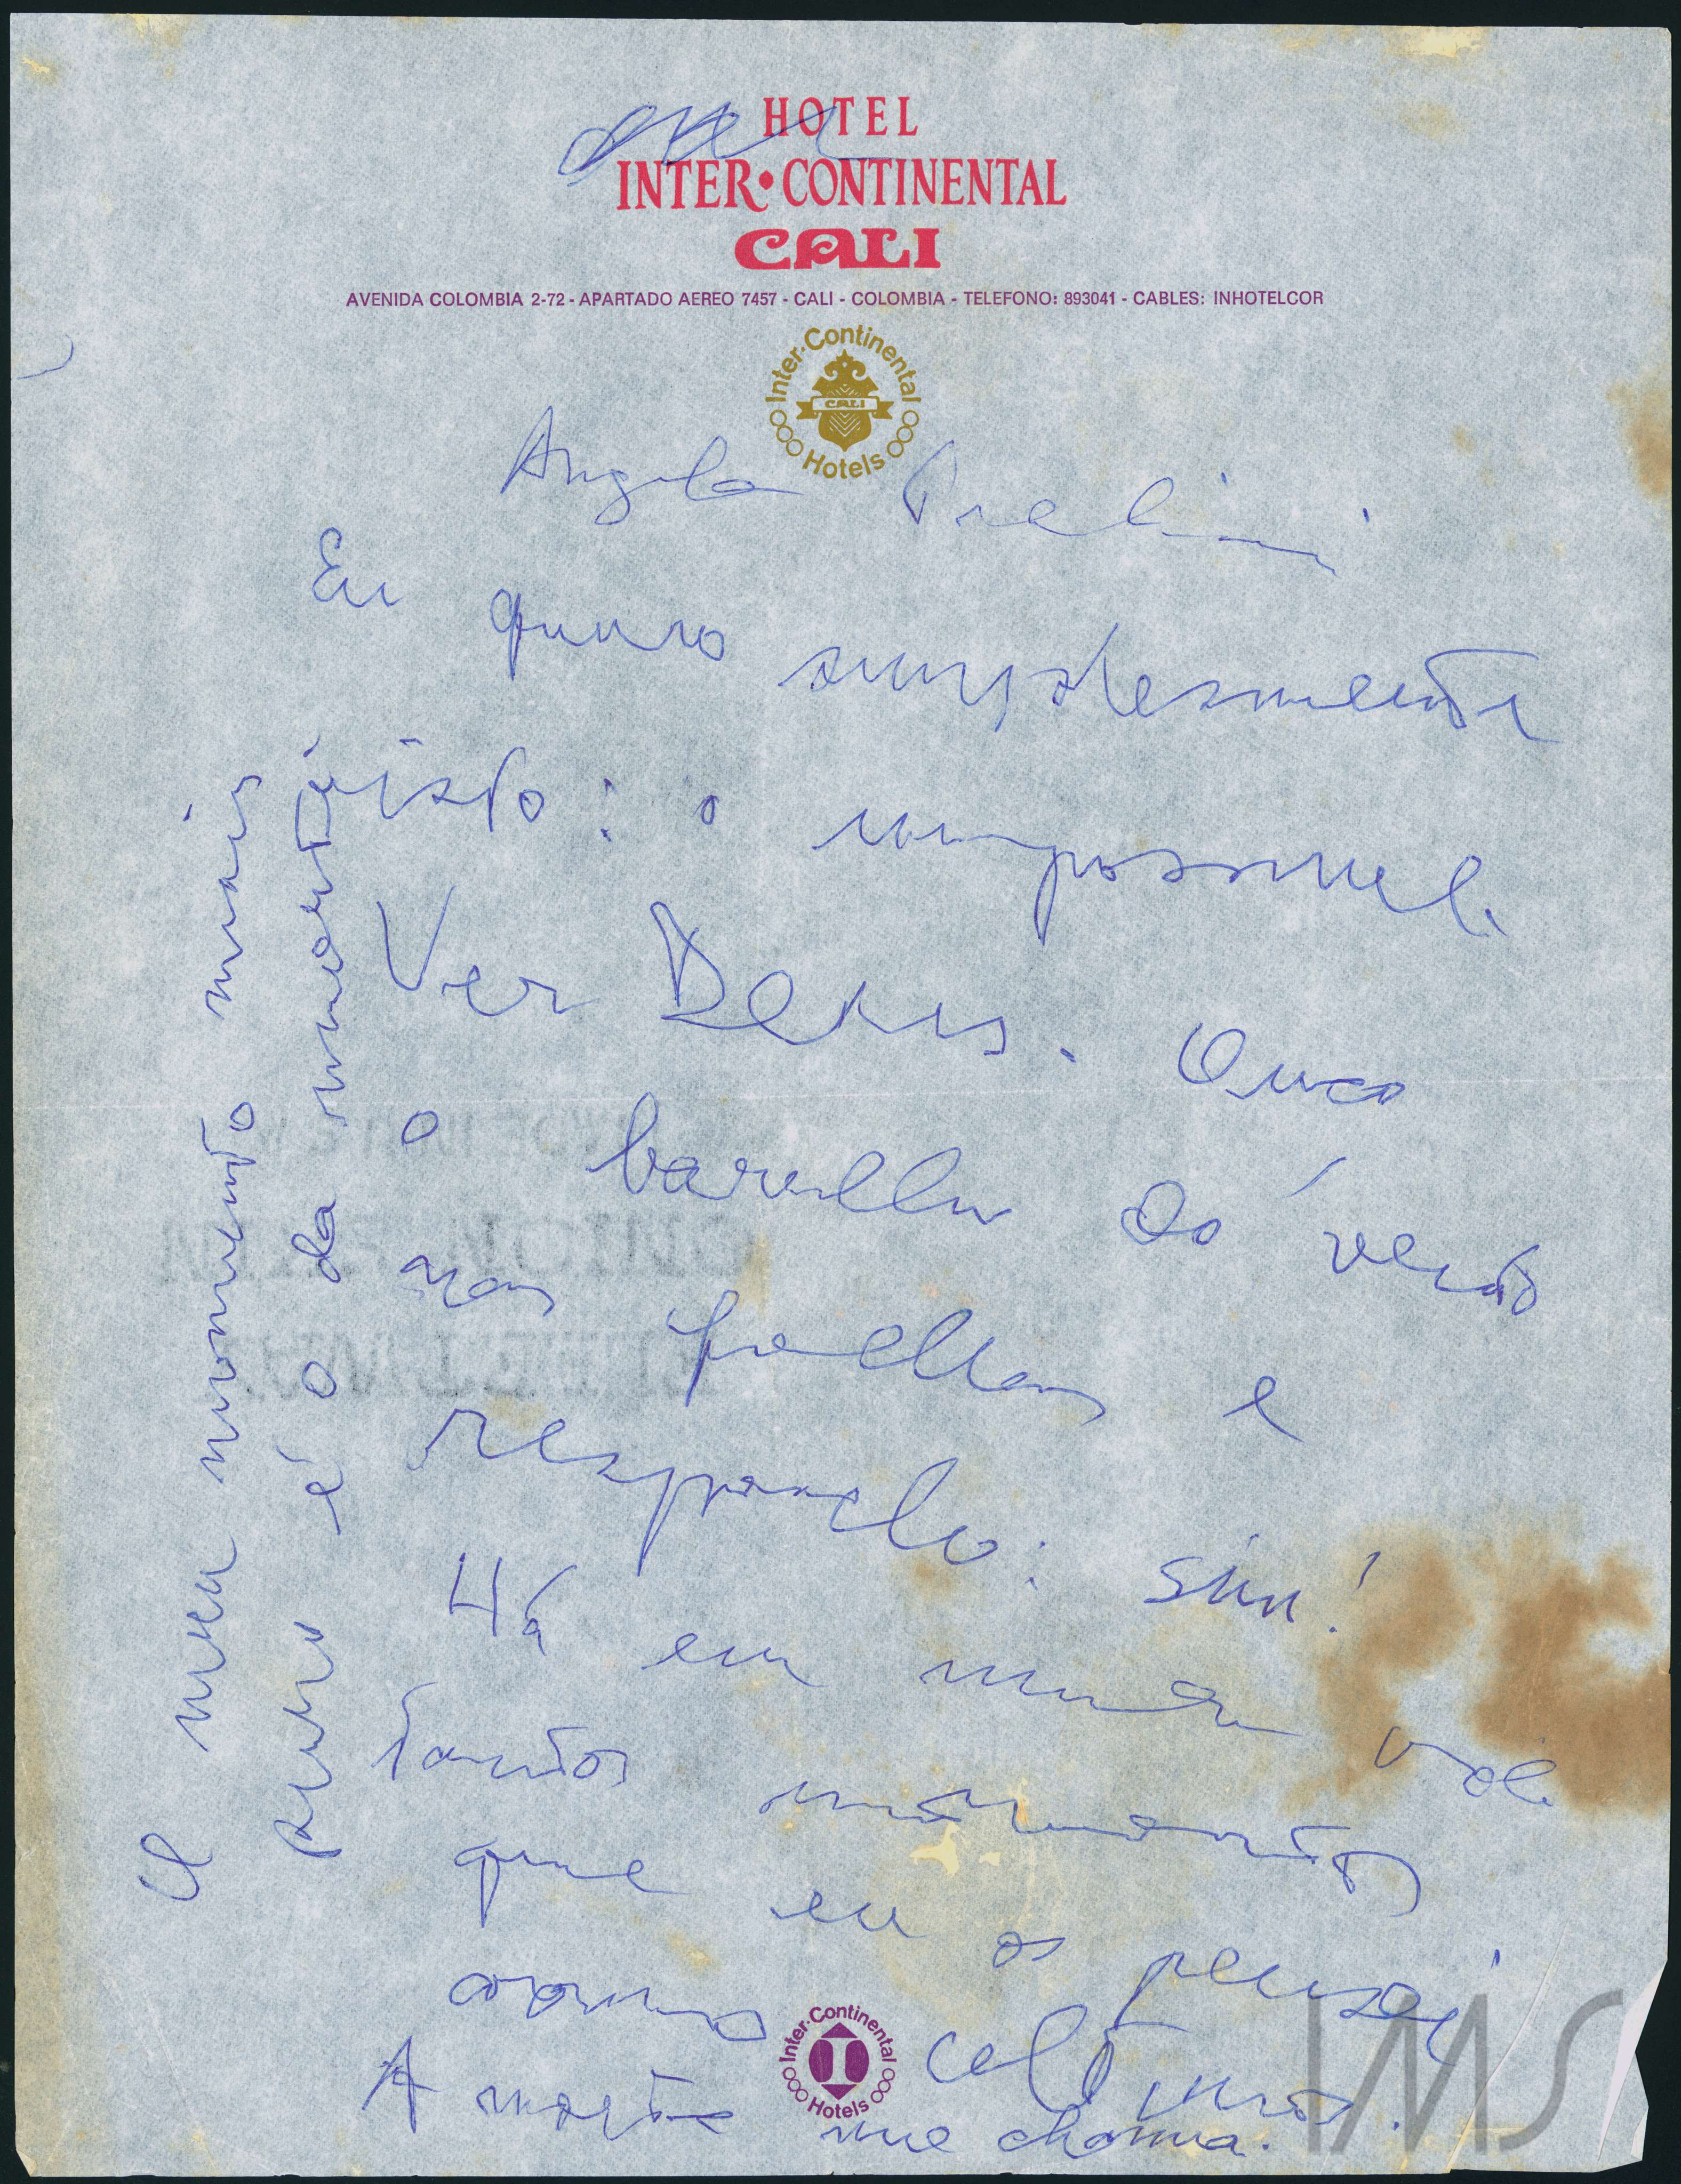 HOTEL
INTER•CONTINENTAL
CALI
AVENIDA COLOMBIA 2-72 - APARTADO AEREO 7457 - CALI - COLOMBIA - TELEFONO: 893041 - CABLES: INHOTELCOR
Inter•Continental
CALI
Hotels
Angela Pralini
Eu quero simplesmente
isto: o impossivel.
Ver Deus. Ouço
o barulho do vento
nas folhas e
respondo: sim!
Há em minha vida
tantos momentos
que eu os pensei
como últimos.
A morte me chama.
O meu momento mais
puro é o da
Inter•Continental
Hotels
IMS